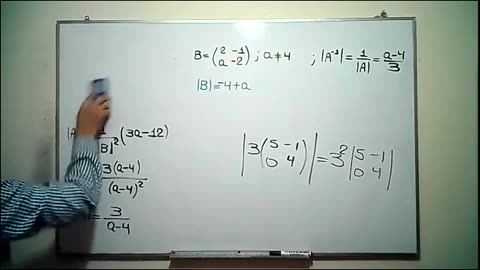 B = (2 -1
a -2) ; a ≠ 4 ; |A⁻¹| = 1/|A| = a-4/3
|B| = -4 + a
|A 1/|B|² (3a-12)
3(a-4)/(a-4)²
= 3/a-4
|3(5 -1
0 4)| = 3²|5 -1
0 4|